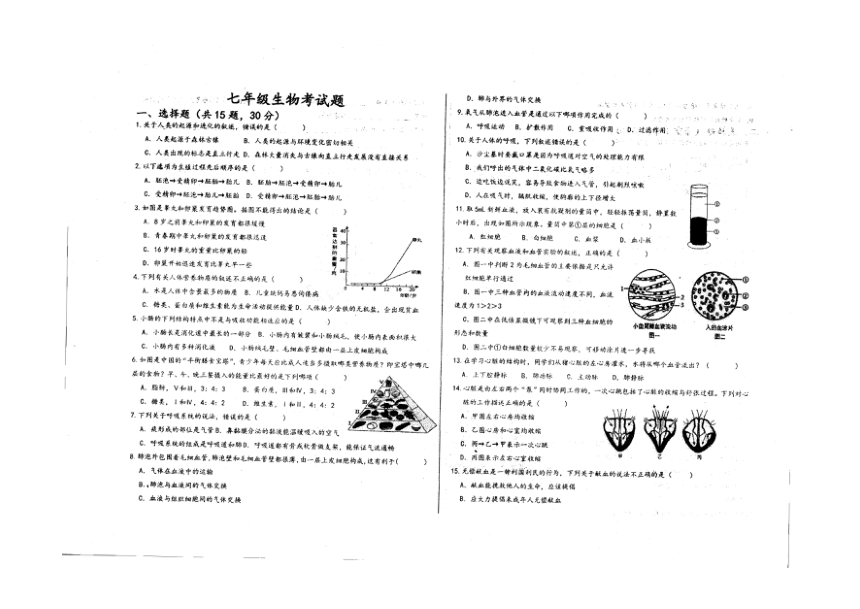 七年级生物考试题
一、选择题（共15题，30分）
1.关于人类的起源和进化的叙述，错误的是（　　）
A. 人类起源于森林古猿　B. 人类的起源与环境变化密切相关
C. 人类出现的标志是直立行走 D. 森林大量消失与古猿向直立行走发展没有直接关系
2.以下选项为生殖过程先后顺序的是（　　）
A. 胚泡→受精卵→胚胎→胎儿 B. 胚胎→胚泡→受精卵→胎儿
C. 受精卵→胚泡→胎儿→胚胎 D. 受精卵→胚泡→胚胎→胎儿
3.如图是睾丸和卵巢发育趋势图。据图不能得出的结论是（　　）
A. 8岁之前睾丸和卵巢的发育都很缓慢
B. 青春期中睾丸和卵巢的发育都很迅速
C. 16岁时睾丸的重量比卵巢的轻
D. 卵巢开始迅速发育比睾丸早一些
4.下列有关人体营养物质的叙述不正确的是（　　）
A. 水是人体中含量最多的物质 B. 儿童缺钙易患佝偻病
C. 糖类、蛋白质和维生素能为生命活动提供能量 D. 人体缺少含铁的无机盐，会出现贫血
5.小肠的下列结构特点中不是与吸收功能相适应的是（　　）
A. 小肠长是消化道中最长的一部分 B. 小肠内有皱襞和小肠绒毛，使小肠内表面积很大
C. 小肠内有多种消化液　D. 小肠绒毛壁、毛细血管壁都由一层上皮细胞构成
6.如图是中国的“平衡膳食宝塔”，青少年每天应比成人适当多摄取哪类营养物质？即宝塔中哪几
层的食物？早、中、晚三餐摄入的能量比最好的是下列哪项（　　）
A. 脂肪，V和II，3：4：3　B. 蛋白质，III和IV，3：4：3
C. 糖类，I和IV，4：4：2　D. 维生素，I和II，4：4：2
7.下列关于呼吸系统的说法，错误的是（　　）
A. 痰形成的部位是气管 B. 鼻黏膜分泌的黏液能温暖吸入的空气
C. 呼吸系统的组成是呼吸道和肺 D. 呼吸道都有骨或软骨做支架，能保证气流通畅
8.肺泡外包围着毛细血管，肺泡壁和毛细血管壁都很薄，由一层上皮细胞构成，这有利于（　　）
A. 气体在血液中的运输
B. 肺泡与血液间的气体交换
C. 血液与组织细胞间的气体交换
D. 肺与外界的气体交换
9.氧气从肺泡进入血管是通过以下哪项作用完成的（　　）
A. 呼吸运动　B. 扩散作用　C. 重吸收作用　D. 过滤作用
10.关于人体的呼吸，下列叙述错误的是（　　）
A. 沙尘暴时要戴口罩是因为呼吸道对空气的处理能力有限
B. 我们呼出的气体中二氧化碳比氧气略多
C. 边吃饭边说笑，容易导致食物进入气管，引起剧烈咳嗽
D. 人在吸气时，膈肌收缩，使胸廓的上下径增大
11.取5mL新鲜血液，放入装有抗凝剂的量筒中，轻轻振荡量筒，静置数
小时后，出现如图所示现象。量筒中第①层的细胞是（　　）
A. 红细胞　B. 白细胞　C. 血浆　D. 血小板
③
②
①
12.下列有关观察血液和血管实验的叙述，正确的是（　　）
A. 图一中判断2为毛细血管的主要依据是只允许
红细胞单行通过
B. 图一中三种血管内的血液流动速度不同，血流
速度为1>2>3
C. 图二中在低倍显微镜下可观察到三种血细胞的
形态和数量
D. 图二中①白细胞数量较少不易观察，可移动涂片进一步寻找
小鱼尾鳍血液流动
图一
人的血涂片
图二
13.在学习心脏的结构时，同学们从猪心脏的左心房灌水，水将从哪个血管流出？（　　）
A. 上下腔静脉　B. 肺动脉　C. 主动脉　D. 肺静脉
14.心脏是由左右两个“泵”同时协同工作的，一次心跳包括了心脏的收缩与舒张过程。下列对心
脏的工作描述正确的是（　　）
A. 甲图左右心房均收缩
B. 乙图心房和心室均收缩
C. 丙→乙→甲表示一次心跳
D. 丙图表示左右心室收缩
甲　乙　丙
15.无偿献血是一种利国利民的行为，下列关于献血的说法不正确的是（　　）
A. 献血能挽救他人的生命，应该提倡
B. 应大力提倡未成年人无偿献血